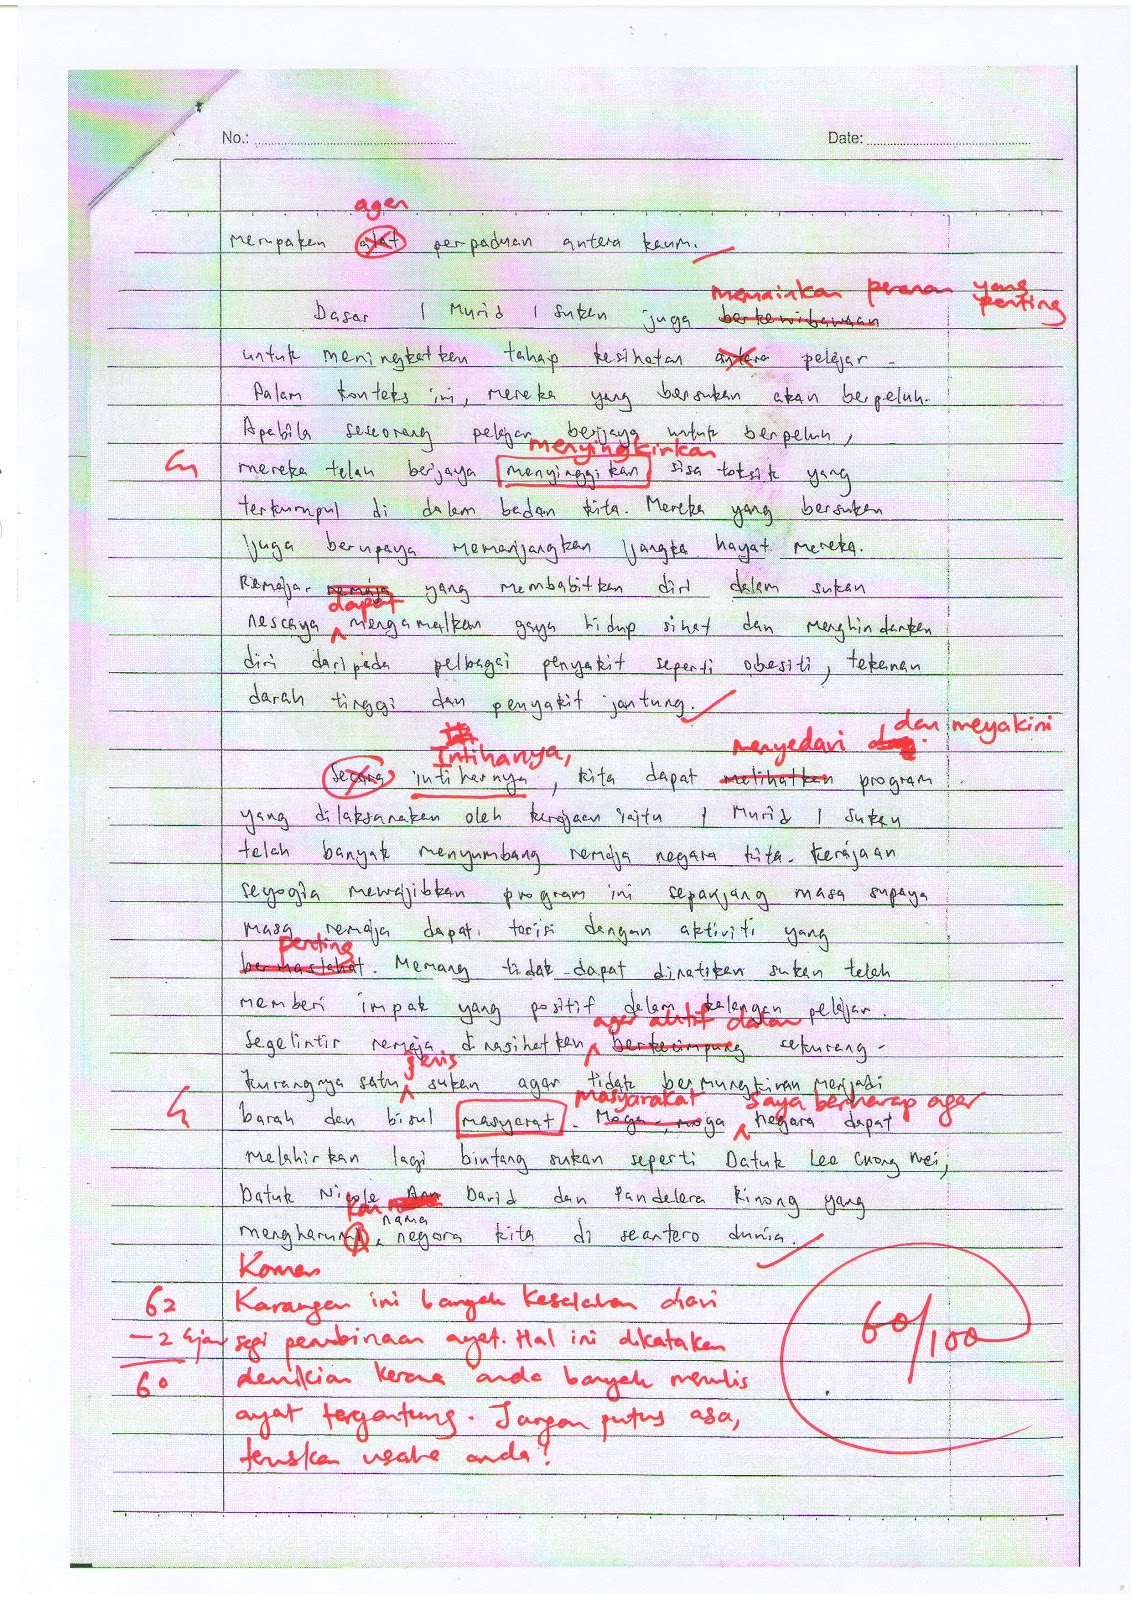 No.: Date:
agen
merupakan alat perpaduan antara kaum.
memainkan peranan yang
penting
Dasar 1 Murid 1 Sukan juga berkewibawaan
untuk meningkatkan tahap kesihatan antara pelajar.
Dalam konteks ini, mereka yang bersukan akan berpeluh.
Apabila seseorang pelajar berjaya untuk berpeluh,
menyingkirkan
mereka telah berjaya menyinggikan sisa toksik yang
terkumpul di dalam badan kita. Mereka yang bersukan
juga berupaya memanjangkan jangka hayat mereka.
Remaja remaja yang membabitkan diri dalam sukan
dapat
nescaya mengamalkan gaya hidup sihat dan menghindarkan
diri daripada pelbagai penyakit seperti obesiti, tekanan
darah tinggi dan penyakit jantung.
Intihanya, menyedari dan meyakini
Secara intiharnya, kita dapat melihatkan program
yang dilaksanakan oleh kerajaan iaitu 1 Murid 1 Sukan
telah banyak menyumbang remaja negara kita. Kerajaan
seyogia mewajibkan program ini sepanjang masa supaya
masa remaja dapat terisi dengan aktiviti yang
penting
bermaslahat. Memang tidak dapat dinafikan sukan telah
memberi impak yang positif dalam kalangan pelajar.
agar aktif dalam
Segelintir remaja dinasihatkan berkecimpung sekurang-
jenis
kurangnya satu sukan agar tidak bermungkiran menjadi
masyarakat Saya berharap agar
barah dan bisul masyarat. Moga-moga negara dapat
melahirkan lagi bintang sukan seperti Datuk Lee Chong Wei,
Datuk Nicole Ann David dan Pandelera Rinong yang
kan nama
mengharumi negara kita di seantero dunia.
Komen
62 Karangan ini banyak kesalahan dari
-2 Ejaan segi pembinaan ayat. Hal ini dikatakan
60 demikian kerana anda banyak menulis
ayat tergantung. Jangan putus asa,
teruskan usaha anda!
60/100